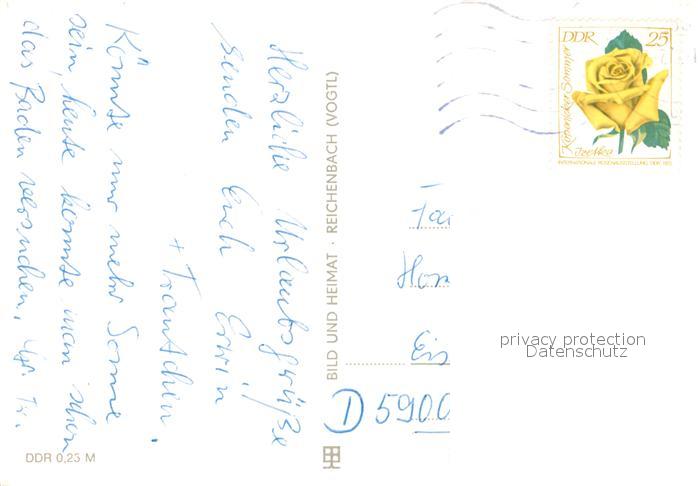 Herzliche Urlaubsgrüße
senden Euch Erwin
+ Trautchen.
Könnte nur mehr Sonne
sein, heute konnte man schon
das Baden versuchen.
DDR 0,25 M
BILD UND HEIMAT · REICHENBACH (VOGTL)
DDR 25
Köpenicker Sommer
Izetka
INTERNATIONALE ROSENAUSSTELLUNG DDR 1972
Fa
Hon
Eis
D 5900
privacy protection
Datenschutz